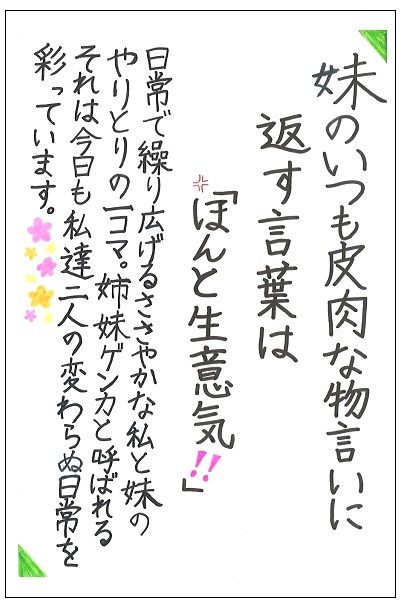 妹のいつも皮肉な物言いに
返す言葉は
「ほんと生意気!!」
日常で繰り広げるささやかな私と妹の
やりとりの一コマ。姉妹ゲンカと呼ばれる
それは今日も私達二人の変わらぬ日常を
彩っています。